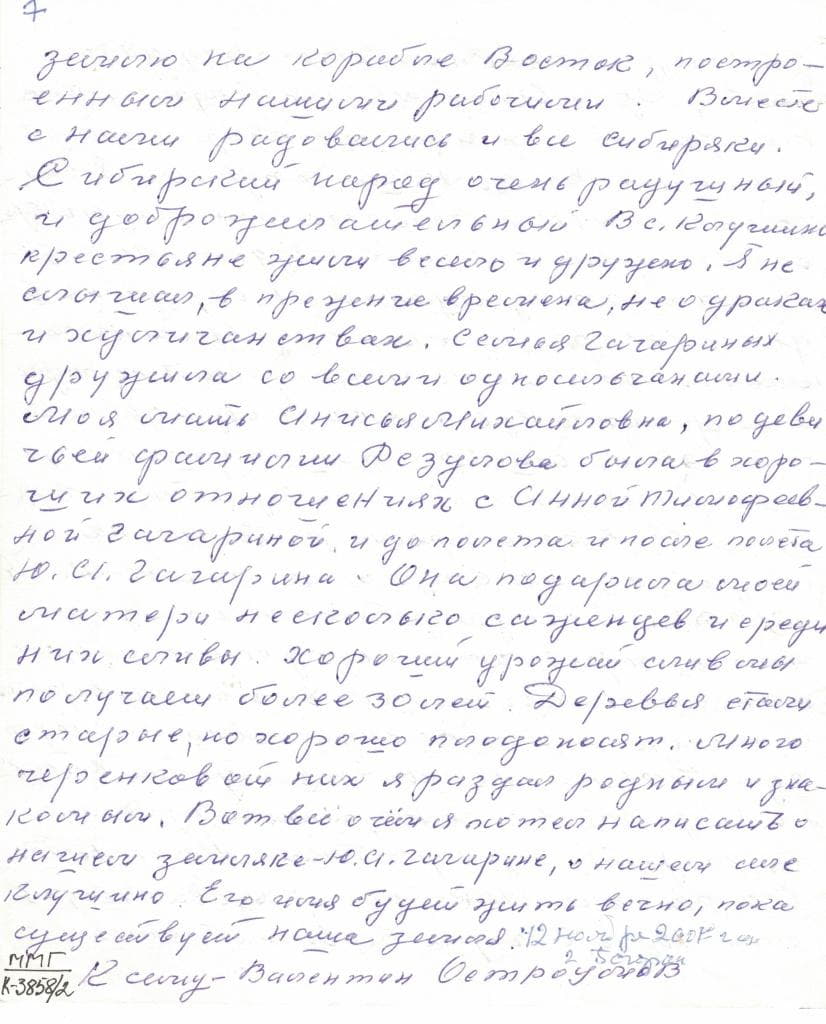 7
землю на корабле Восток, постро-
енным нашими рабочими. Вместе
с нами радовались и все сибиряки.
Сибирский народ очень радушный,
и доброжелательный В с. Клушино
крестьяне жили весело и дружно. Я не
слышал, в прежние времена, не о драках
и хулиганствах. Семья Гагариных
дружила со всеми односельчанами.
Моя мать Анисья Михайловна, по деви
чьей фамилии Резулова была в хоро-
ших отношениях с Анной Тимофеев-
ной Гагариной, и до полета и после полёта
Ю. А. Гагарина. Она подарила моей
матери несколько саженцев и среди
них сливы. Хороший урожай слив мы
получаем более 30 лет. Деревья стали
старые, но хорошо плодоносят. Много
черенков от них я раздал родным и зна-
комым. Вот всё о чём я хотел написать о
нашем земляке - Ю. А. Гагарине, о нашем селе
Клушино. Его имя будет жить вечно, пока
существует наша земля. 12 ноября
К сему - Валентин
ММГ
К-3858/2